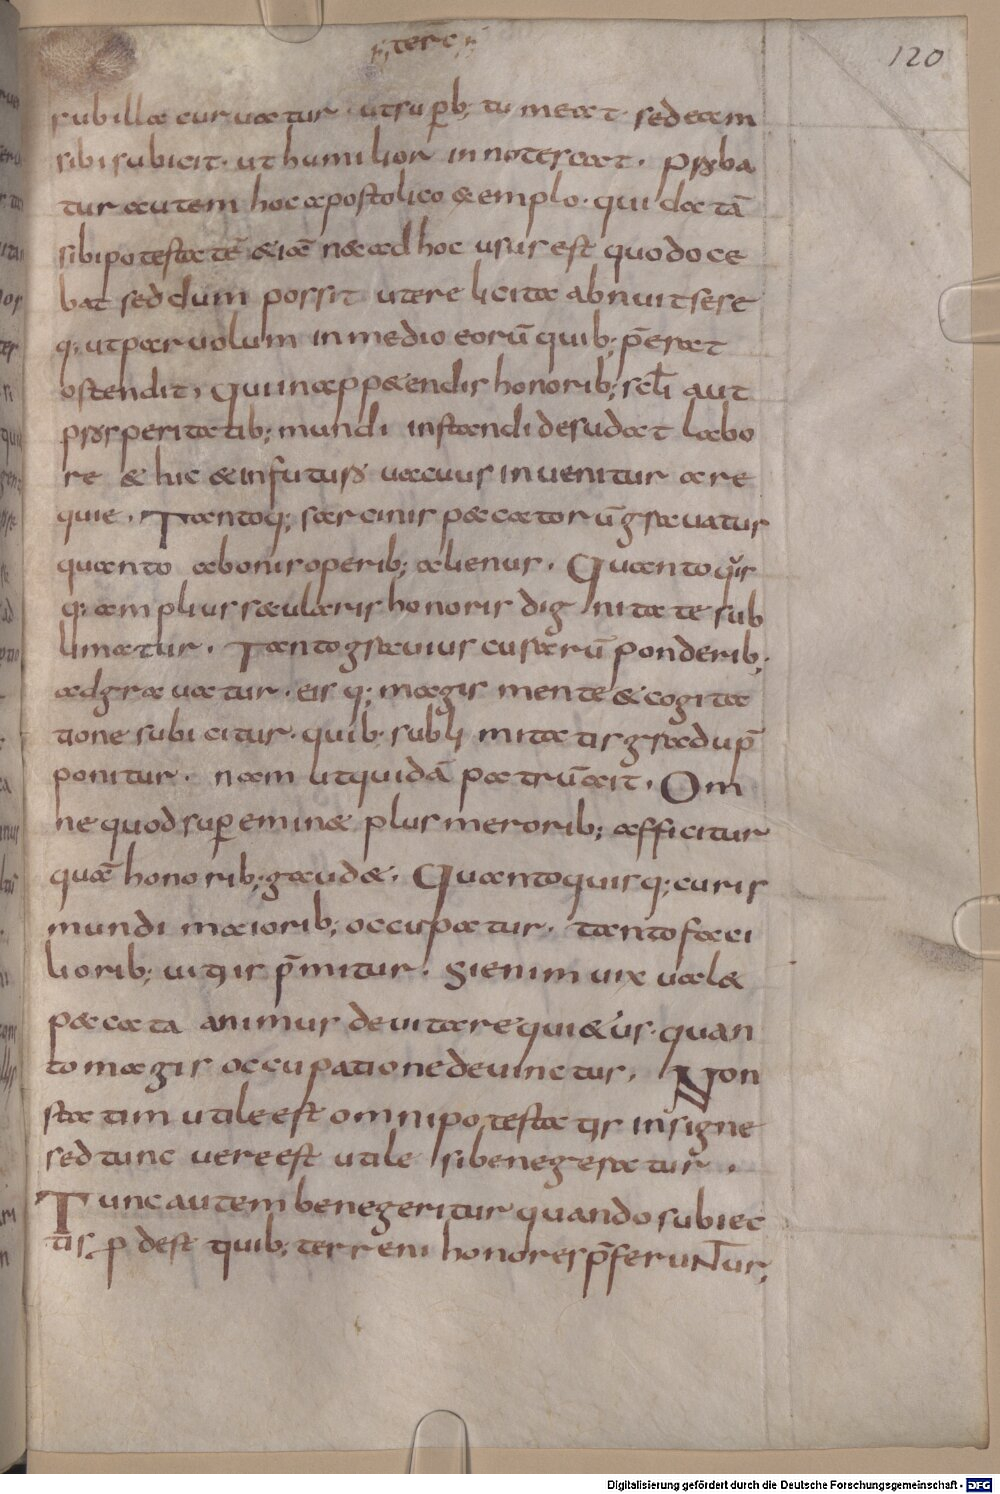 n; terc; n;
120
rubillae curuatur · utsup̄b; tumeat · sed eam
sibi subicit · ut humilior innotescat . proba
tur autem hoc apostolico exemplo · qui datā
sibi potestatē etiā nec ad hoc usus est quod oce
bat sed dum possit utere licita abnuit sese
q; ut paruolum in medio eorū quib; p̄erat
ostendit, Qui in appetendis honorib; scl̄i aut
prosperitatib; mundi instanti desudat labo
re & hic & in futuro uacuus inuenitur a re
quie . Tantoq; sarcinis peccatorū grauatur
quanto a bonis operib; alienus . Quanto quis
q; amplius saecularis honoris dignitate sub
limatur . Tanto grauius curarū ponderib;
adgrauatur . eis q; magis mente & cogita
tione subicitur · quib; sublimitatis gradu p̄
ponitur . nam ut quidā patrū ait . Om
ne quod sup̄eminet plus meroribus; afficitur
quā honorib; gaudet . Quanto quisq; curis
mundi maiorib; occupatur . tanto faci
liorib; uitiis p̄mitur . Si enim uix ualet
peccata animus deuitare quietus · quan
to magis occupatione deuinctus . Non
statim utile est omni potestatis insigne
sed tunc uere est utile si bene geratur .
Tunc autem bene geritur quando subiec
tis p̄dest quib; terreni honores p̄feruntur;
Digitalisierung gefördert durch die Deutsche Forschungsgemeinschaft - DFG